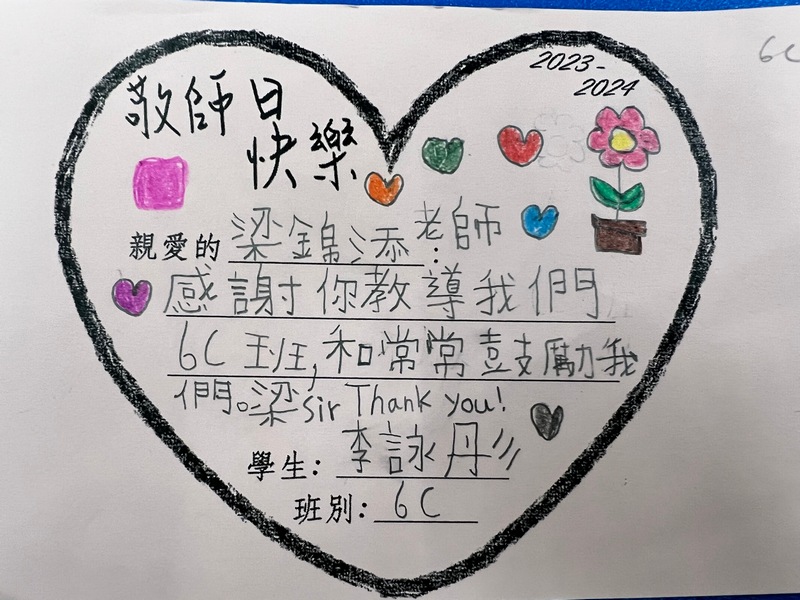 6C
2023-
2024
敬師日
快樂
親愛的梁錦添老師:
感謝你教導我們
6C班,和常常鼓勵我
們。梁sir Thank you!
學生:李詠彤
班別:6C